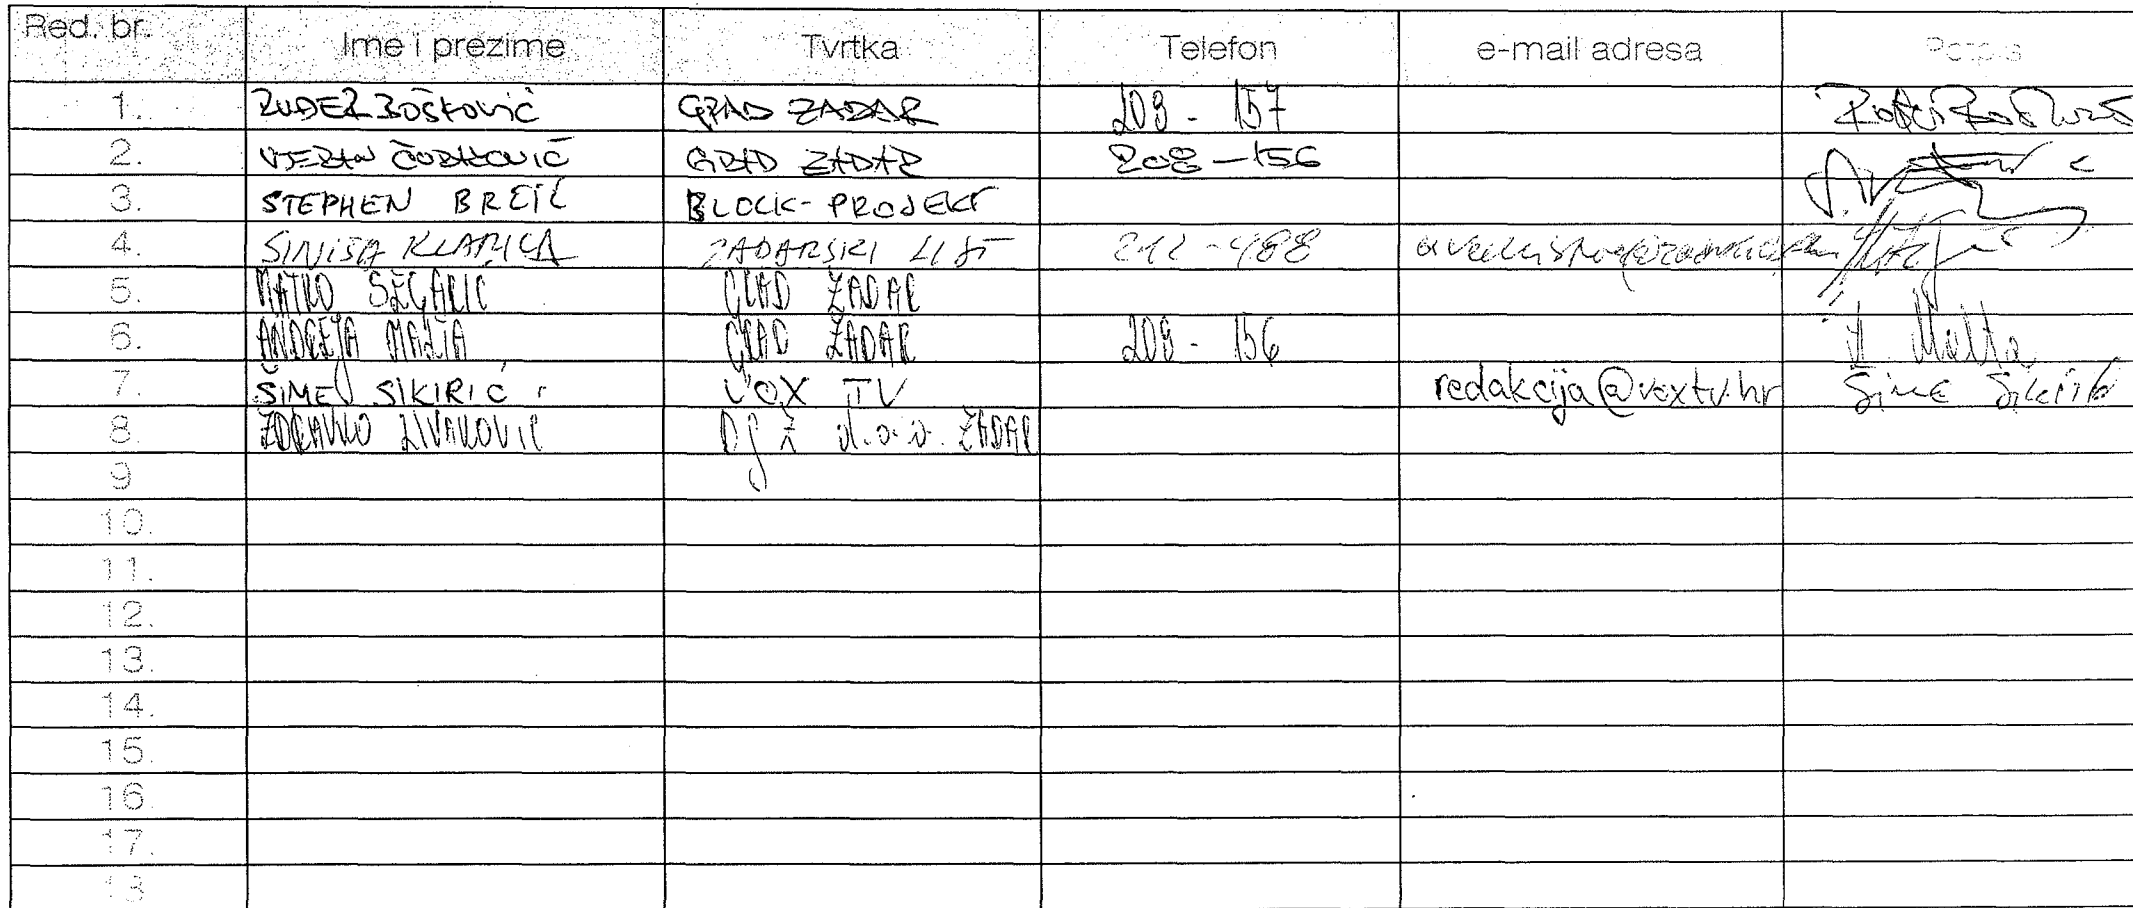 Red. br. Ime i prezime Tvrtka Telefon e-mail adresa Potpis
1. RUĐER BOŠKOVIĆ GRAD ZADAR 208 - 157
2. VJERAN GRAD ZADAR 208 - 156
3. STEPHEN BRČIĆ BLOCK-PROJEKT
4. SINIŠA KLARICA ZADARSKI LIST 212 - 488
5. MATKO SEGARIĆ GRAD ZADAR
6. ANDREJA MALTA GRAD ZADAR 208 - 156 A. Malta
7. ŠIME SIKIRIĆ VOX TV redakcija@voxtv.hr Šime Sikirić
8. ZDRAVKO LIVAKOVIĆ d.o.o. ZADAR
9
10.
11.
12.
13.
14.
15.
16.
17.
18